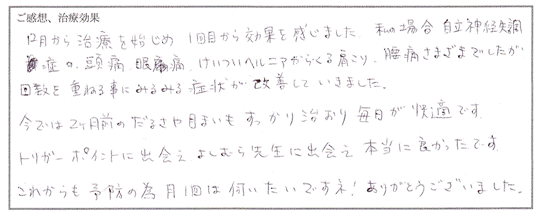 ご感想、治療効果
12月から治療を始じめ 1回目から効果を感じました 私の場合 自立神経失調
症の、頭痛、眼痛、けいついヘルニアからくる肩こり、腰痛さまざまでしたが
回数を重ねる事にみるみる症状が改善していきました。
今では2ヶ月前のだるさや目まいもすっかり治おり 毎日が快適です
トリガーポイントに出会え よしむら先生に出会え 本当に良かったです
これからも予防の為 月1回は付いたいですネ! ありがとうございました。